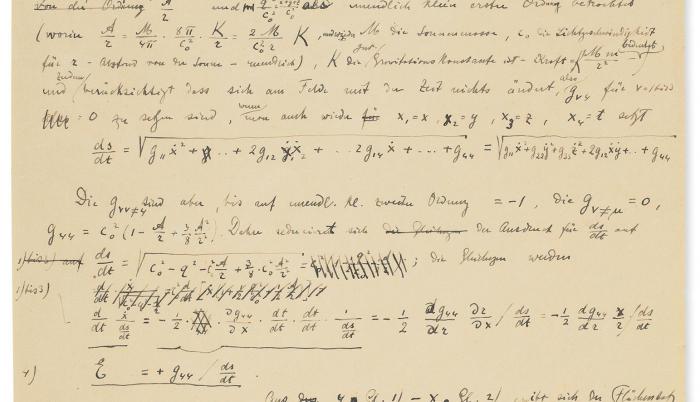 von die Ordnung A/2 und q²/c₀² als unendlich klein erster Ordnung betrachtet
(worin A/2 = M/4π · 8π/c₀² · K/2 = 2M/c₀²2 K, M die Sonnenmasse, c₀ die Lichtgeschwindigkeit
für r = Abstand von der Sonne = unendlich), K die Gravitationskonstante ist - Kraft = K M m/r² bedingt)
und berücksichtigt dass sich am Felde mit der Zeit nichts ändert, also g_γ4 für γ=1 bis 3
= 0 zu setzen sind, wenn man auch wieder für x₁=x, x₂=y, x₃=z, x₄=t setzt
ds/dt = √(g₁₁ẋ² + .. + 2g₁₂ẋẏ + .. 2g₁₄ẋ + ... + g₄₄) = √(g₁₁ẋ²+g₂₂ẏ²+g₃₃ż²+2g₁₂ẋẏ+... + g₄₄)
Die g_νν≠4 sind aber, bis auf unendl. kl. zweiter Ordnung = -1, die g_ν≠μ = 0,
g₄₄ = c₀²(1 - A/2 + 3/8 A²/2). Daher reduciert sich der Ausdruck für ds/dt auf
1) bis 3) auf ds/dt = √(c₀² - q² - c₀² A/2 + 3/8 · c₀² A²/2) = ; die Gleichungen werden
1) bis 3)
d/dt ẋ/(ds/dt) = -1/2 · ∂g₄₄/∂x · dt/dt · dt/dt · 1/(ds/dt) = -1/2 dg₄₄/dr ∂r/∂x / ds/dt = -1/2 dg₄₄/dr x/r / ds/dt
4) E = + g₄₄ / ds/dt
Aus 4. Gl. 1) - x. Gl. 2) ergibt sich der Flächensatz